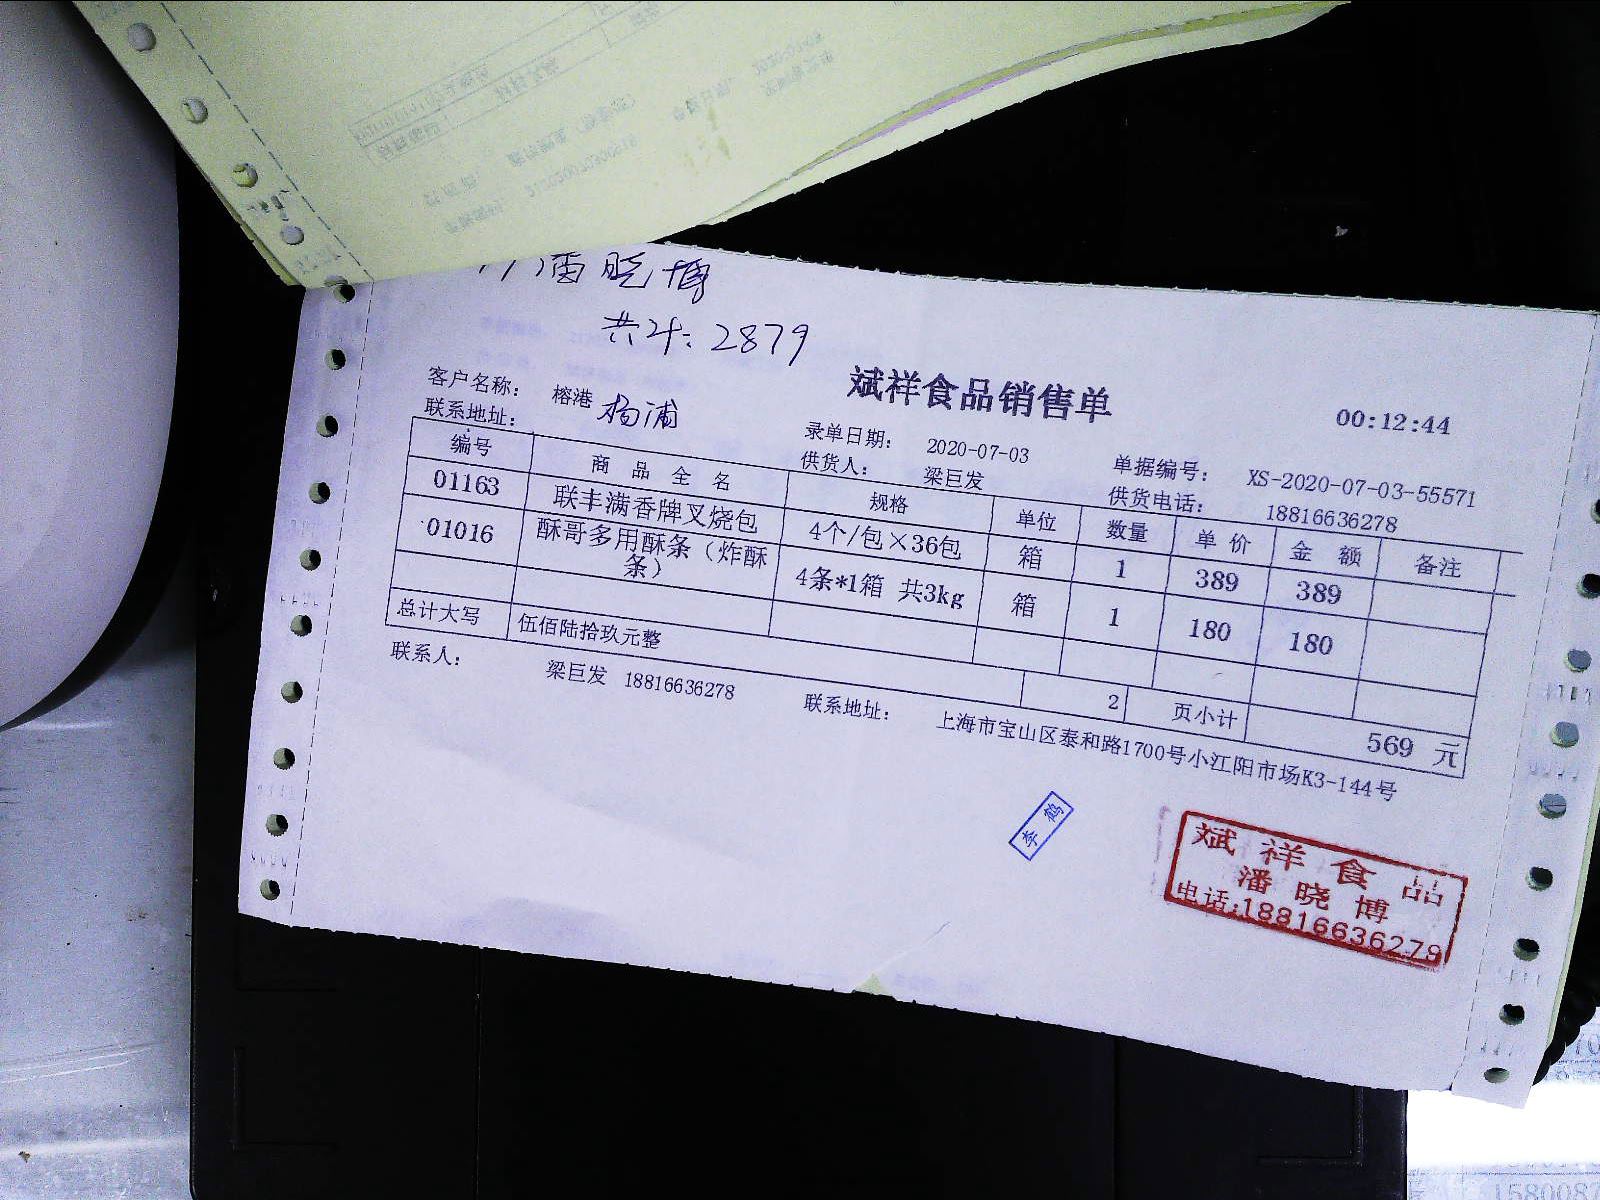 潘晓博
共计: 2879
斌祥食品销售单
00:12:44
客户名称: 榕港 杨浦
录单日期: 2020-07-03
单据编号: XS-2020-07-03-55571
联系地址:
供货人: 梁巨发
供货电话: 18816636278
编号 商品全名 规格 单位 数量 单价 金额 备注
01163 联丰满香牌叉烧包 4个/包×36包 箱 1 389 389
01016 酥哥多用酥条（炸酥条） 4条*1箱 共3kg 箱 1 180 180
总计大写 伍佰陆拾玖元整 2 页小计 569 元
联系人: 梁巨发 18816636278
联系地址: 上海市宝山区泰和路1700号小江阳市场K3-144号
李鹤
斌祥食品
潘晓博
电话:18816636279